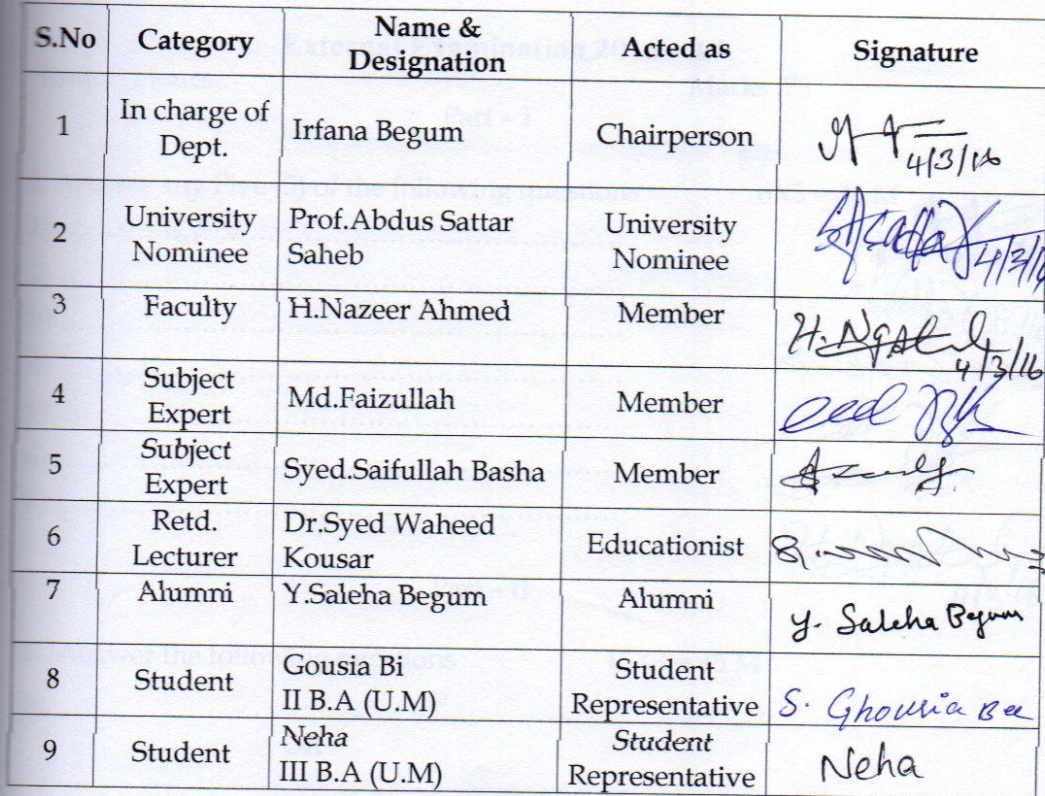 S.No Category Name & Designation Acted as Signature
1 In charge of Dept. Irfana Begum Chairperson 4/3/16
2 University Nominee Prof.Abdus Sattar Saheb University Nominee 4/3/16
3 Faculty H.Nazeer Ahmed Member 4/3/16
4 Subject Expert Md.Faizullah Member
5 Subject Expert Syed.Saifullah Basha Member
6 Retd. Lecturer Dr.Syed Waheed Kousar Educationist
7 Alumni Y.Saleha Begum Alumni Y. Saleha Begum
8 Student Gousia Bi II B.A (U.M) Student Representative S. Ghousia Bee
9 Student Neha III B.A (U.M) Student Representative Neha